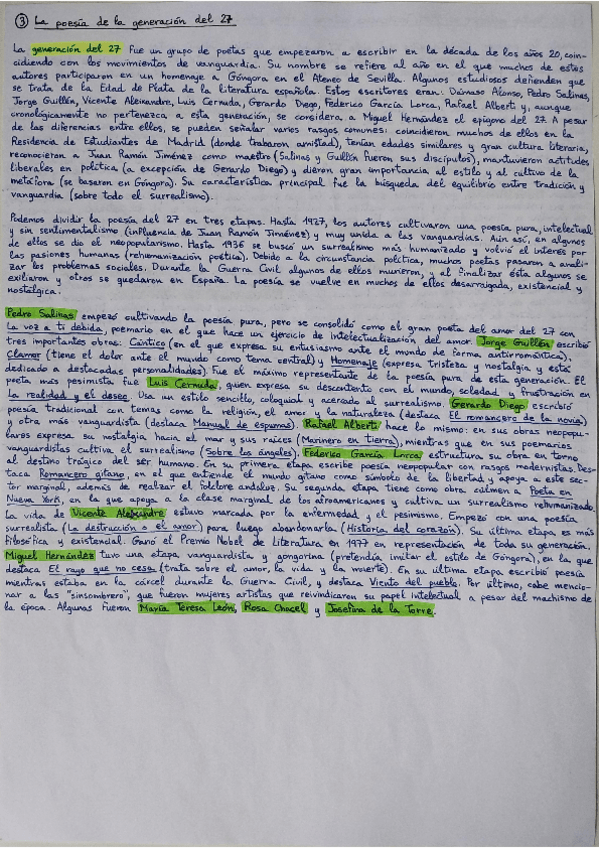 ③ La poesía de la generación del 27
La generación del 27 fue un grupo de poetas que empezaron a escribir en la década de los años 20, coin-
cidiendo con los movimientos de vanguardia. Su nombre se refiere al año en el que muchos de estos
autores participaron en un homenaje a Góngora en el Ateneo de Sevilla. Algunos estudiosos defienden que
se trata de la Edad de Plata de la literatura española. Estos escritores eran: Dámaso Alonso, Pedro Salinas,
Jorge Guillén, Vicente Aleixandre, Luis Cernuda, Gerardo Diego, Federico García Lorca, Rafael Alberti y, aunque
cronológicamente no pertenezca a esta generación, se considera a Miguel Hernández el epígono del 27. A pesar
de las diferencias entre ellos, se pueden señalar varios rasgos comunes: coincidieron muchos de ellos en la
Residencia de Estudiantes de Madrid (donde trabaron amistad), tenían edades similares y gran cultura literaria,
reconocieron a Juan Ramón Jiménez como maestro (Salinas y Guillén fueron sus discípulos), mantuvieron actitudes
liberales en política (a excepción de Gerardo Diego) y dieron gran importancia al estilo y al cultivo de la
metáfora (se basaron en Góngora). Su característica principal fue la búsqueda del equilibrio entre tradición y
vanguardia (sobre todo el surrealismo).
Podemos dividir la poesía del 27 en tres etapas. Hasta 1927, los autores cultivaron una poesía pura, intelectual
y sin sentimentalismo (influencia de Juan Ramón Jiménez) y muy unida a las vanguardias. Aún así, en algunos
de ellos se dio el neopopularismo. Hasta 1936 se buscó un surrealismo más humanizado y volvió el interés por
las pasiones humanas (rehumanización poética). Debido a la circunstancia política, muchos poetas pasaron a anali-
zar los problemas sociales. Durante la Guerra Civil algunos de ellos murieron, y al finalizar ésta algunos se
exiliaron y otros se quedaron en España. La poesía se vuelve en muchos de ellos desarraigada, existencial y
nostálgica.
Pedro Salinas empezó cultivando la poesía pura, pero se consolidó como el gran poeta del amor del 27 con
La voz a ti debida, poemario en el que hace un ejercicio de intelectualización del amor. Jorge Guillén escribió
tres importantes obras: Cántico (en el que expresa su entusiasmo ante el mundo de forma antirromántica),
Clamor (tiene el dolor ante el mundo como tema central) y Homenaje (expresa tristeza y nostalgia y está
dedicado a destacadas personalidades). Fue el máximo representante de la poesía pura de esta generación. El
poeta más pesimista fue Luis Cernuda, quien expresa su descontento con el mundo, soledad y frustración en
La realidad y el deseo. Usa un estilo sencillo, coloquial y acercado al surrealismo. Gerardo Diego escribió
poesía tradicional con temas como la religión, el amor y la naturaleza (destaca El romancero de la novia)
y otra más vanguardista (destaca Manual de espumas). Rafael Alberti hace lo mismo: en sus obras neopopu-
lares expresa su nostalgia hacia el mar y sus raíces (Marinero en tierra), mientras que en sus poemarios
vanguardistas cultiva el surrealismo (Sobre los ángeles). Federico García Lorca estructura su obra en torno
al destino trágico del ser humano. En su primera etapa escribe poesía neopopular con rasgos modernistas. Des-
taca Romancero gitano, en que entiende el mundo gitano como símbolo de la libertad y apoya a este sec-
tor marginal, además de realizar el folclore andaluz. Su segunda etapa tiene como obra culmen a Poeta en
Nueva York, en la que apoya a la clase marginal de los afroamericanos y cultiva un surrealismo rehumanizado.
La vida de Vicente Aleixandre estuvo marcada por la enfermedad y el pesimismo. Empezó con una poesía
surrealista (La destrucción o el amor) para luego abandonarla (Historia del corazón). Su última etapa, es más
filosófica y existencial. Ganó el Premio Nobel de Literatura en 1977 en representación de toda su generación.
Miguel Hernández tuvo una etapa vanguardista y gongorina (pretendía imitar el estilo de Góngora), en la que
destaca El rayo que no cesa (trata sobre el amor, la vida y la muerte). En su última etapa escribió poesía
mientras estaba en la cárcel durante la Guerra Civil, y destaca Viento del pueblo. Por último, cabe mencio-
nar a las "sinsombrero", que fueron mujeres artistas que reivindicaron su papel intelectual a pesar del machismo de
la época. Algunas fueron María Teresa León, Rosa Chacel y Josefina de la Torre.